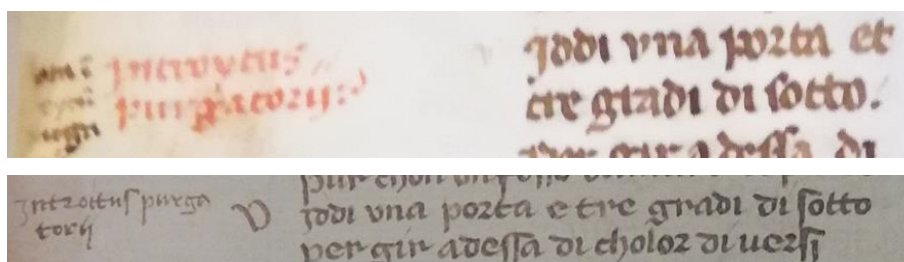 introytus
purgatorij:
jodi vna porta et
tre gradi di sotto.
per gir adessa di
introitus purga
torij
v
jodi vna porta e tre gradi di sotto
per gir adessa di cholor di uersi